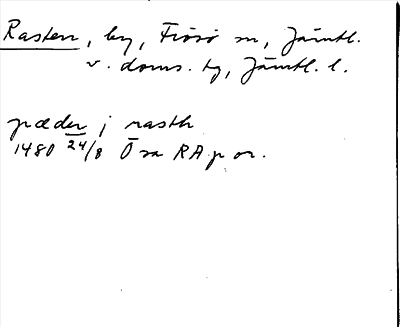 Rasten, by, Frösö sn, Jämtl.
v. doms. tg, Jämtl. l.
pæder j rasth
1480 24/8 Ösa RAp or.